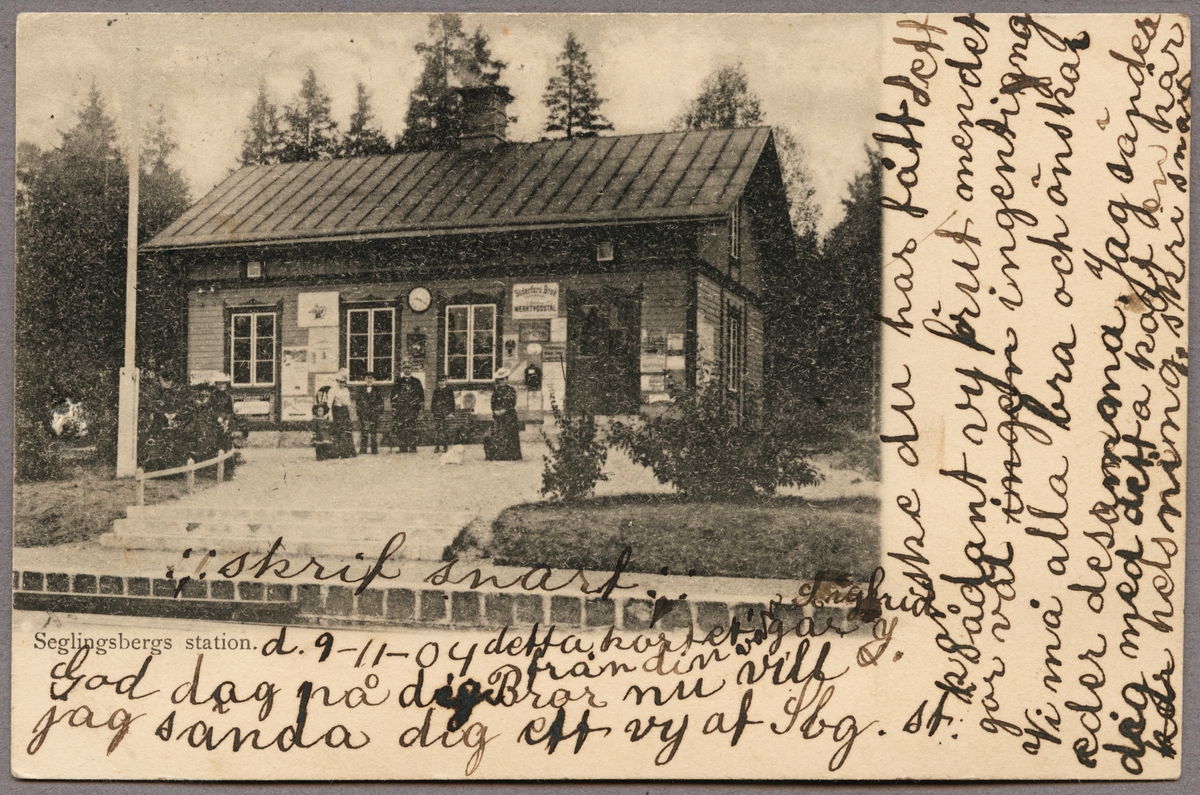 Söderfors Bruk
WERKTYGSSTÅL
:: skrif snart ::
Seglingsbergs station.
d. 9-11-04 detta kortet går
från din vän Ingfrid J.
God dag på dig Bror nu vill
jag sända dig ett vy af Sbg. st.
kanske du har fått ett
sådant vy förut men det
gör väl ingen ingenting
Vi må alla bra och önskar
eder desamma Jag sänder
dig med detta kort en kär
kär helsning, skrif snart